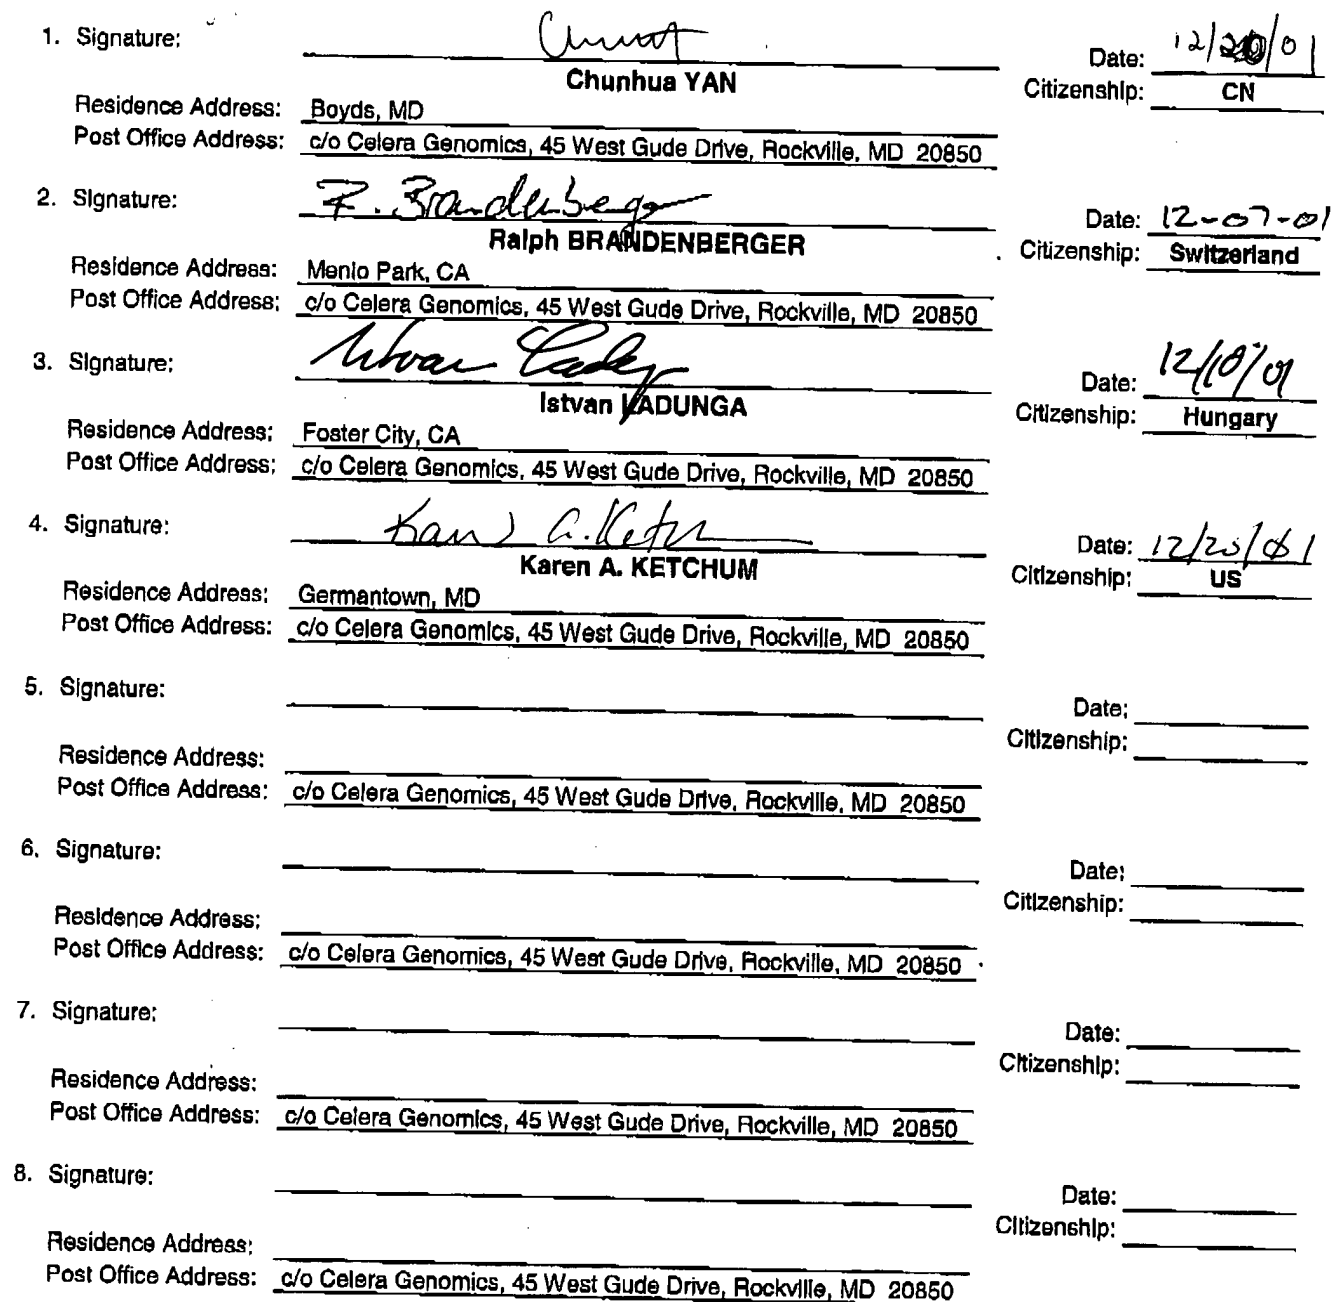 1. Signature:
Date: 12/20/01
Chunhua YAN
Citizenship: CN
Residence Address: Boyds, MD
Post Office Address: c/o Celera Genomics, 45 West Gude Drive, Rockville, MD 20850
2. Signature: R. Brandenberger
Date: 12-07-01
Ralph BRANDENBERGER
Citizenship: Switzerland
Residence Address: Menlo Park, CA
Post Office Address: c/o Celera Genomics, 45 West Gude Drive, Rockville, MD 20850
3. Signature: Istvan Ladunga
Date: 12/10/01
Istvan LADUNGA
Citizenship: Hungary
Residence Address: Foster City, CA
Post Office Address: c/o Celera Genomics, 45 West Gude Drive, Rockville, MD 20850
4. Signature: Karen A. Ketchum
Date: 12/20/01
Karen A. KETCHUM
Citizenship: US
Residence Address: Germantown, MD
Post Office Address: c/o Celera Genomics, 45 West Gude Drive, Rockville, MD 20850
5. Signature:
Date:
Citizenship:
Residence Address:
Post Office Address: c/o Celera Genomics, 45 West Gude Drive, Rockville, MD 20850
6. Signature:
Date:
Citizenship:
Residence Address:
Post Office Address: c/o Celera Genomics, 45 West Gude Drive, Rockville, MD 20850
7. Signature:
Date:
Citizenship:
Residence Address:
Post Office Address: c/o Celera Genomics, 45 West Gude Drive, Rockville, MD 20850
8. Signature:
Date:
Citizenship:
Residence Address:
Post Office Address: c/o Celera Genomics, 45 West Gude Drive, Rockville, MD 20850